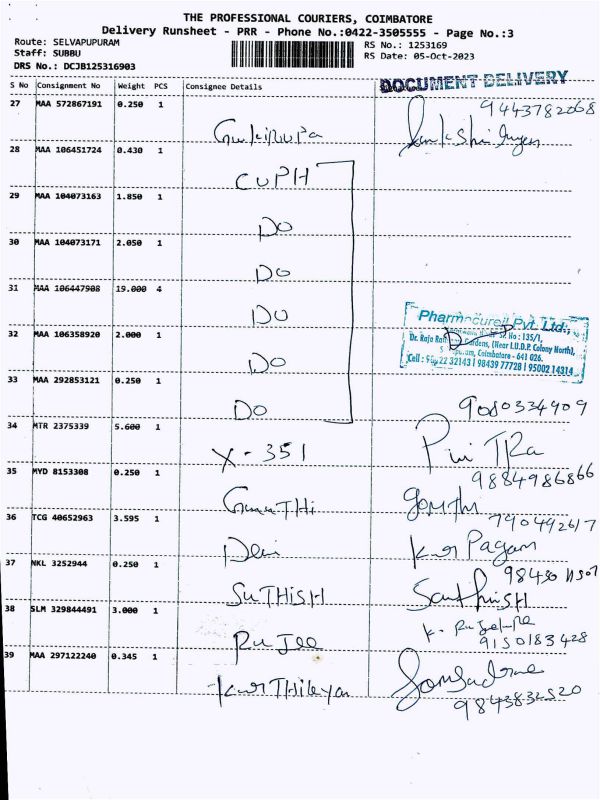 THE PROFESSIONAL COURIERS, COIMBATORE
Delivery Runsheet - PRR - Phone No.:0422-3505555 - Page No.:3
Route: SELVAPUPURAM
Staff: SUBBU
DRS No.: DCJB125316903
RS No.: 1253169
RS Date: 05-Oct-2023
DOCUMENT DELIVERY
S No Consignment No Weight PCS Consignee Details
27 MAA 572867191 0.250 1 9443782068
28 MAA 106451724 0.430 1 CUPH
29 MAA 104073163 1.850 1 DO
30 MAA 104073171 2.050 1 DO
31 MAA 106447908 19.000 4 DO
32 MAA 106358920 2.000 1 DO
Pharmacureil Pvt. Ltd.,
No : 135/1,
Gardens, (Near I.U.D.P. Colony North),
Coimbatore - 641 026.
Cell : 32143 | 98439 77728 | 95002 14314
33 MAA 292853121 0.250 1 DO
34 MTR 2375339 5.600 1 X-351 9080334909
35 MYD 8153308 0.250 1 9884986866
36 TCG 40652963 3.595 1 Devi
37 NKL 3252944 0.250 1 SUTHISH
38 SLM 329844491 3.000 1 9150183428
39 MAA 297122240 0.345 1